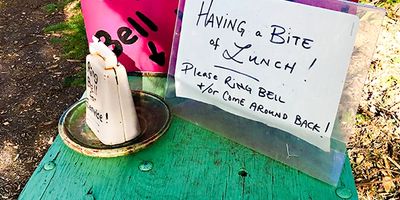 Bell
HAVING A BITE
OF LUNCH!
PLEASE RING BELL
+/OR COME AROUND BACK!